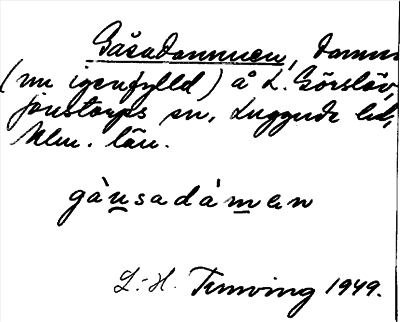 Gåsadammen, damm
(nu igenfylld) å L. Görslöv,
Jonstorps sn, Luggude hd,
Mlm. län.
gàu̲sadám̲en
L.-H. Turving 1949.